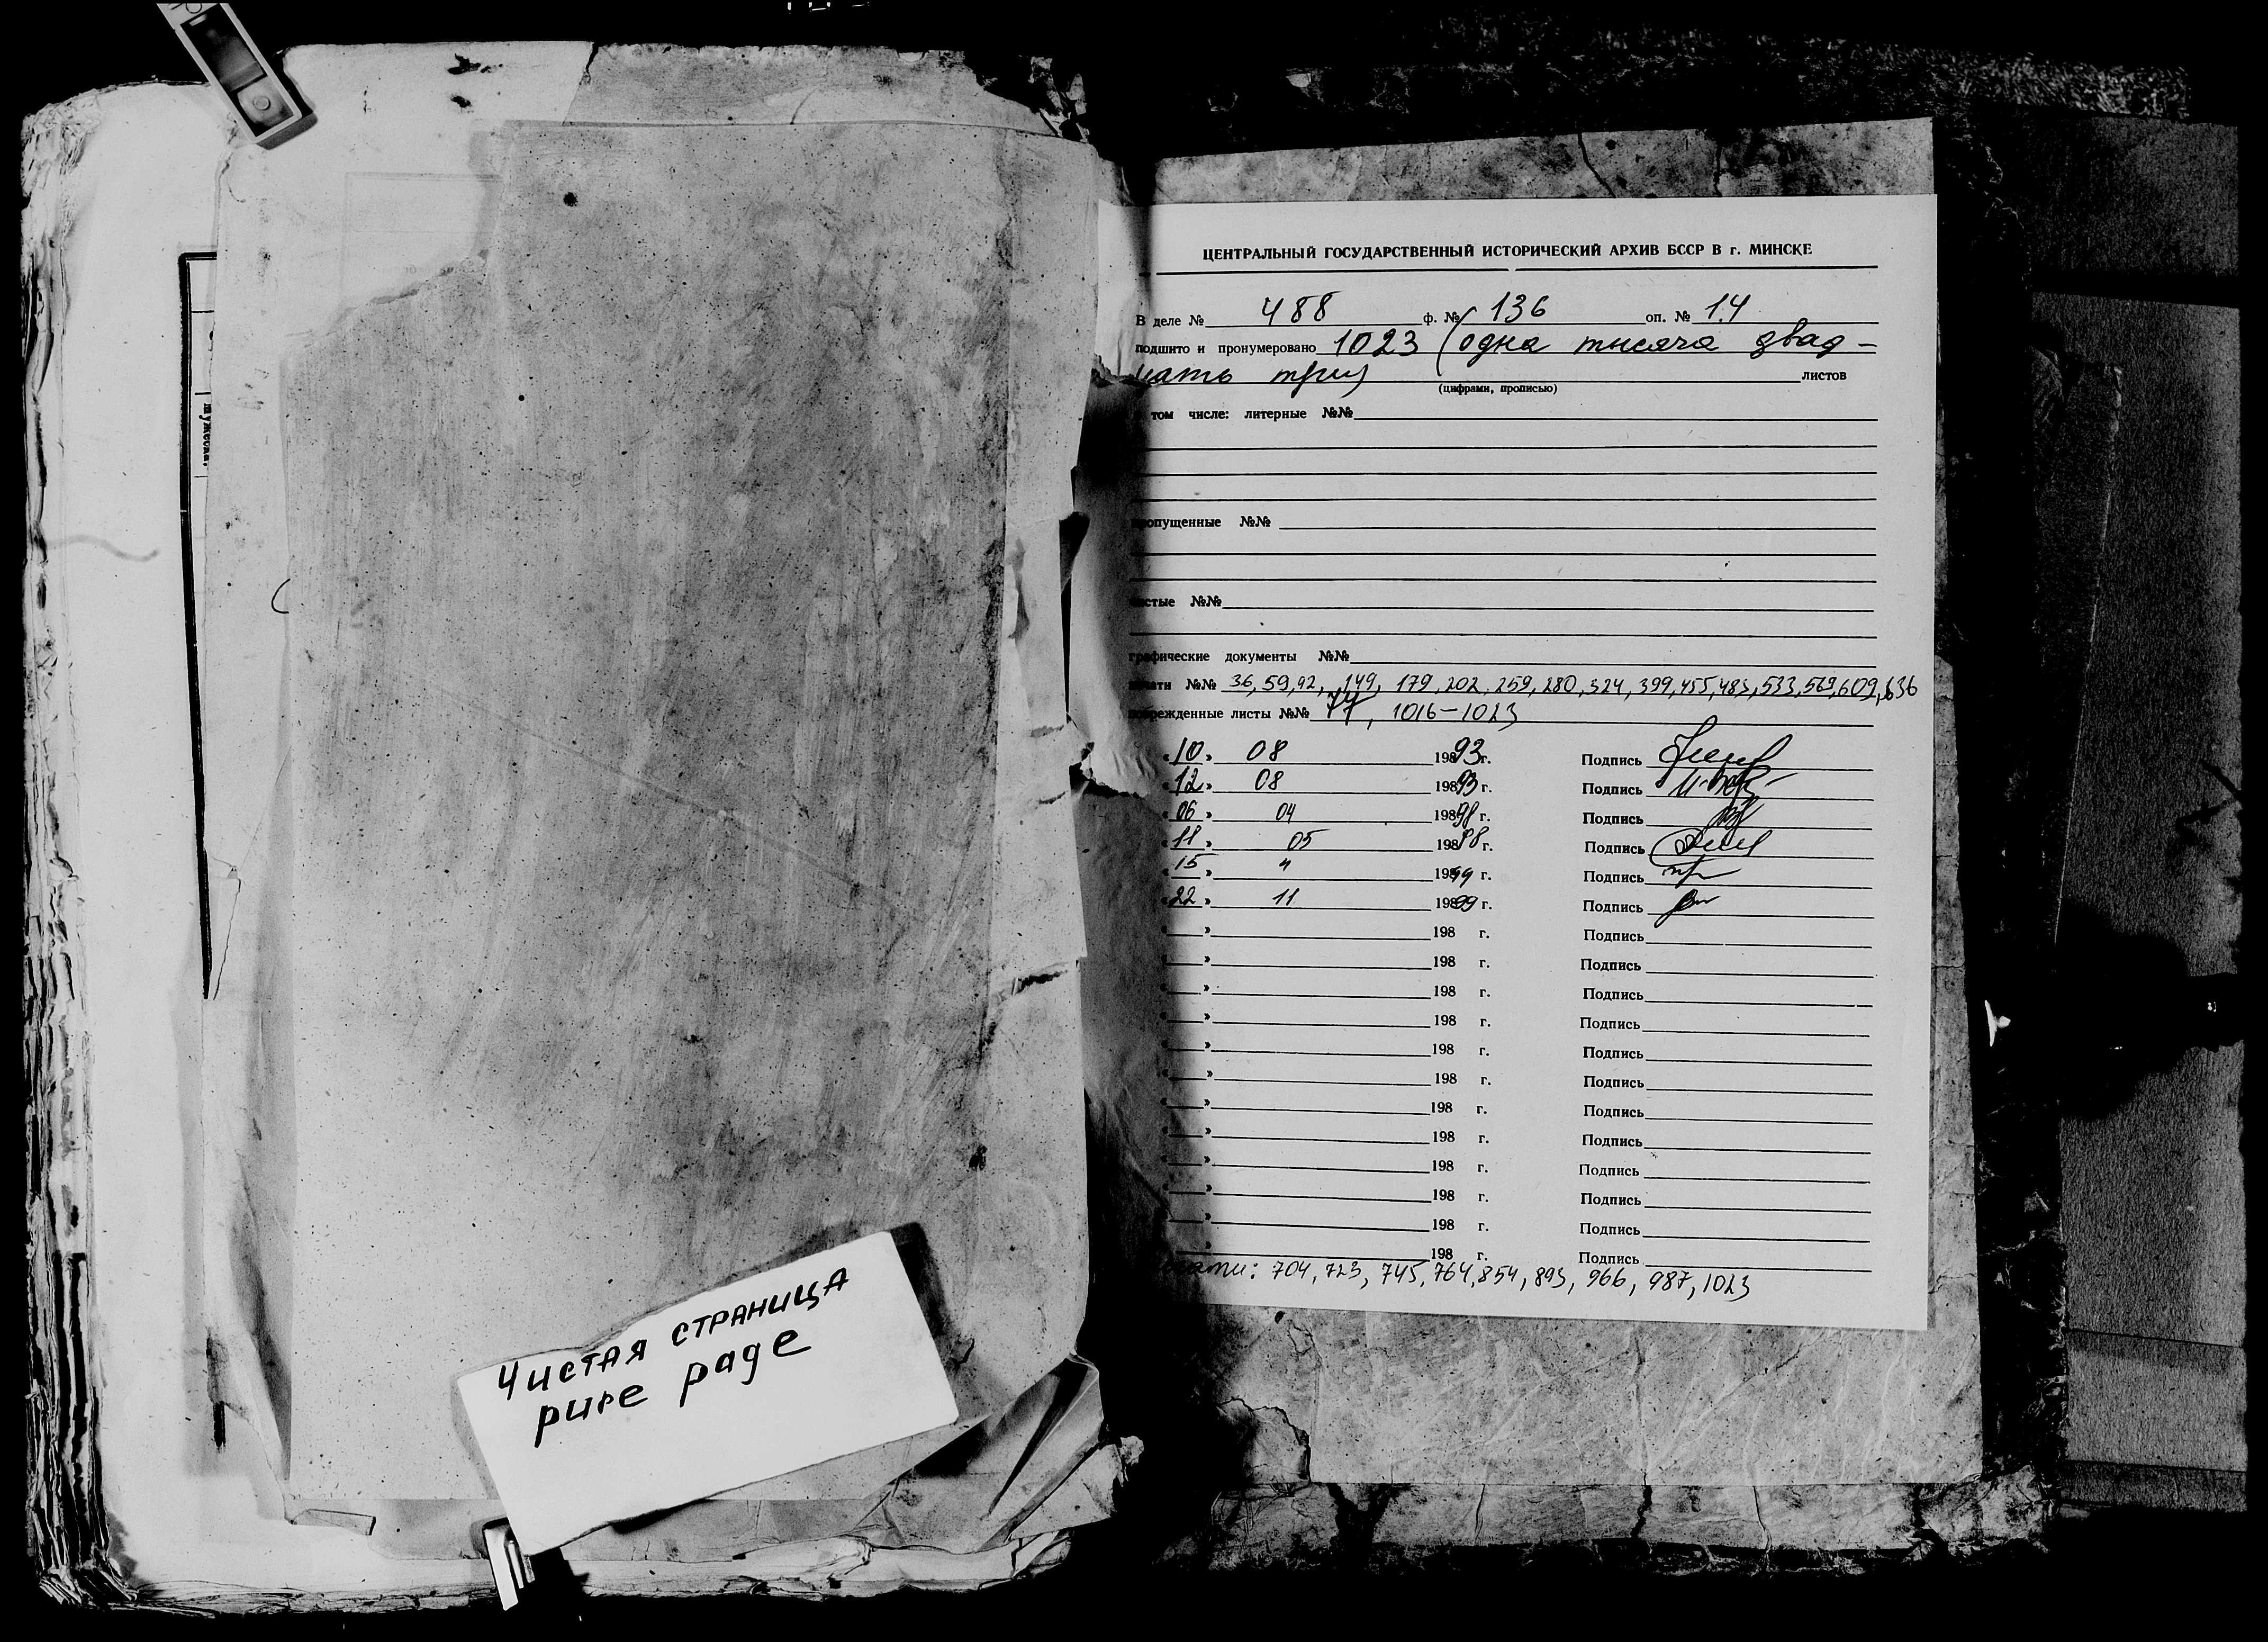 мужеска.
Чистая страница
pure page
ЦЕНТРАЛЬНЫЙ ГОСУДАРСТВЕННЫЙ ИСТОРИЧЕСКИЙ АРХИВ БССР В г. МИНСКЕ
В деле № 488 ф. № 136 оп. № 14
подшито и пронумеровано 1023 (одна тысяча двад-
цать три) листов
(цифрами, прописью)
том числе: литерные №№
пропущенные №№
чистые №№
графические документы №№
печати №№ 36, 59, 92, 149, 179, 202, 259, 280, 324, 399, 455, 483, 533, 569, 609, 636
поврежденные листы №№ 77, 1016-1023
«10» 08 1993г. Подпись
«12» 08 19893 г. Подпись
«06» 04 19898 г. Подпись
«11» 05 19898 г. Подпись
«15» 4 19899 г. Подпись
«22» 11 19899 г. Подпись
« » 198 г. Подпись
« » 198 г. Подпись
« » 198 г. Подпись
« » 198 г. Подпись
« » 198 г. Подпись
« » 198 г. Подпись
« » 198 г. Подпись
« » 198 г. Подпись
« » 198 г. Подпись
« » 198 г. Подпись
» 198 г. Подпись
» 198 г. Подпись
печати: 704, 723, 745, 764, 854, 893, 966, 987, 1023